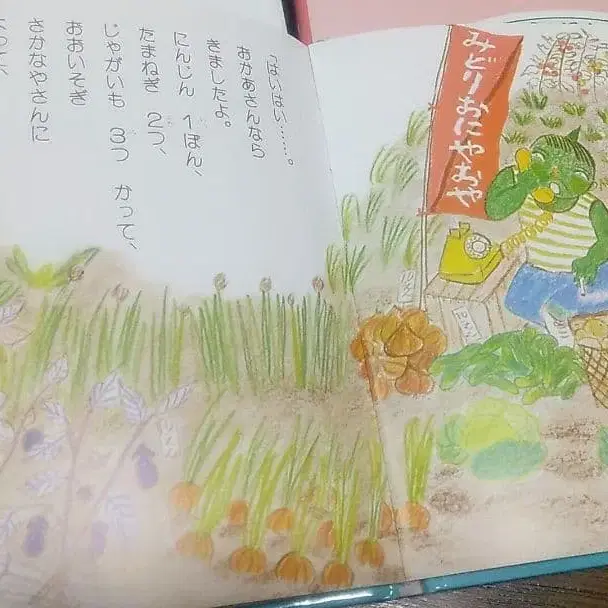 「はいはい……。
おかあさんなら
きましたよ。
にんじん 1ぽん、
たまねぎ 2つ、
じゃがいも 3つ かって、
おおいそぎ
さかなやさんに
みどりおにやおや